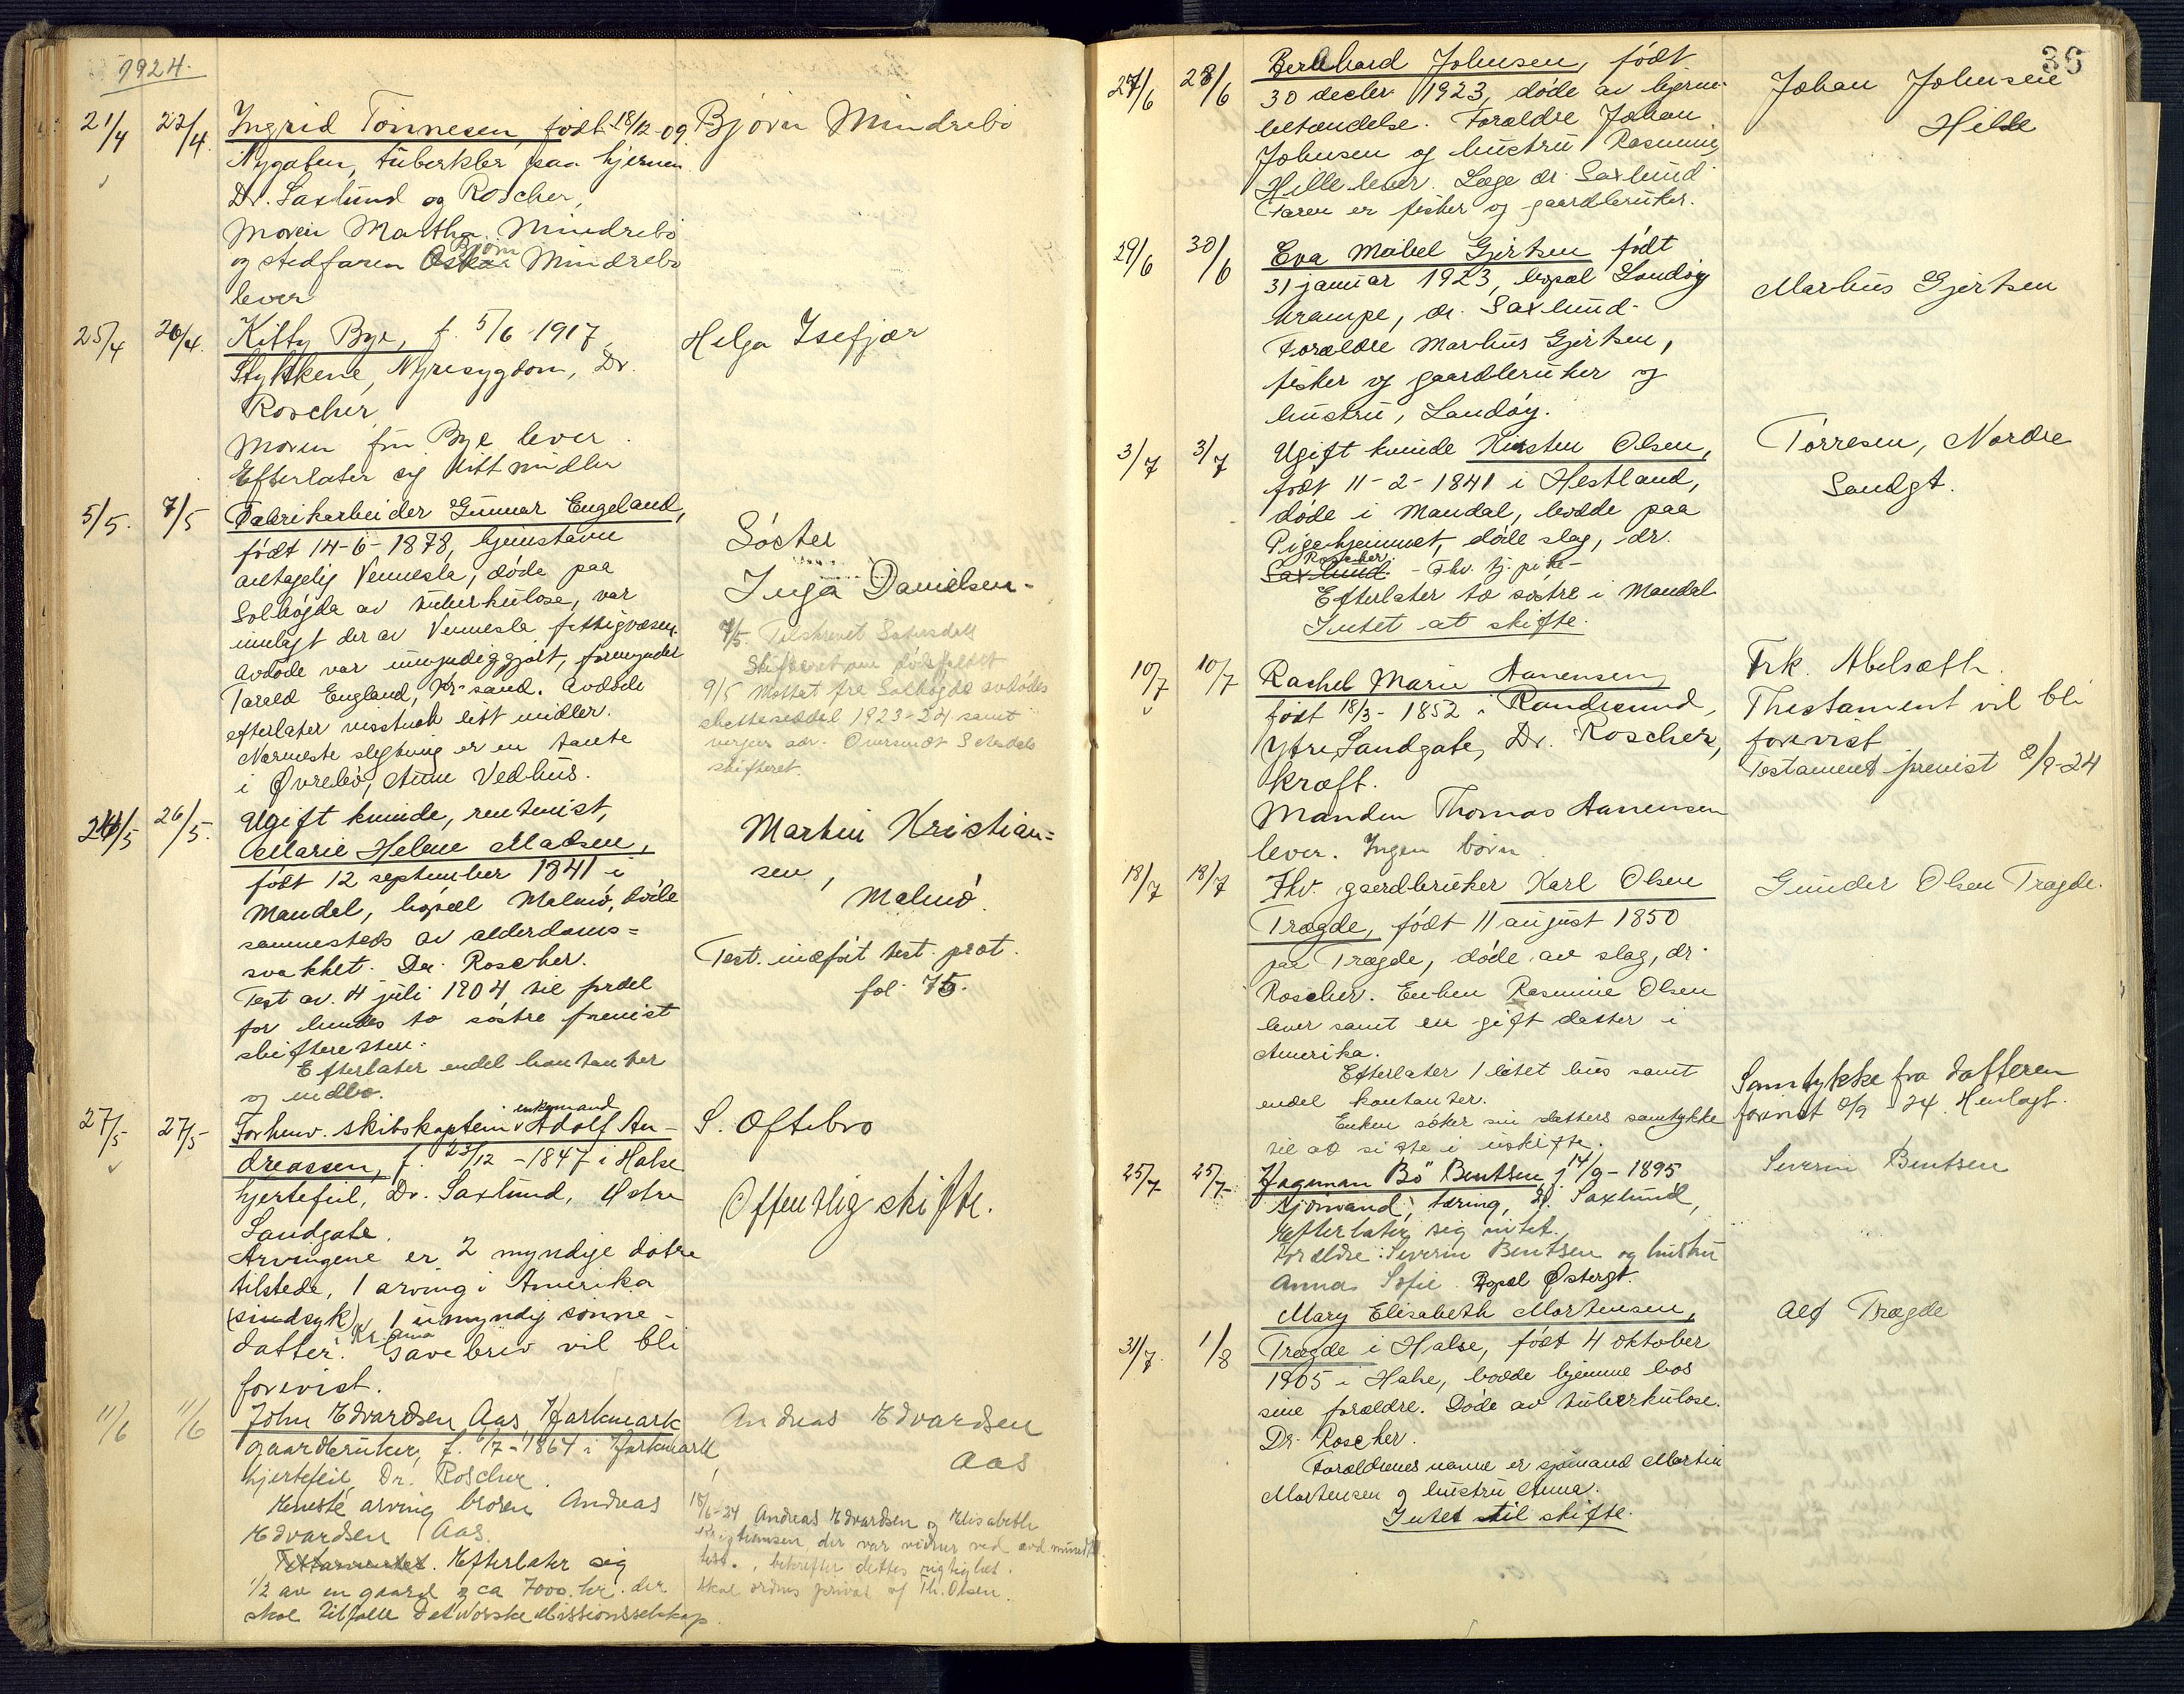 1924.
21/4 22/4 Ingrid Tönnesen, født 18/12-09 Bjørn Mindrebö
Nygaten, tuberkler paa hjernen.
Dr. Saxlund og Roscher,
Moren Martha Mindrebö
og stedfaren Bjørn Mindrebö
lever
25/4 26/4. Kitty Bye, f. 5/6 1917, Helga Isefjær
Stykkene, Nyresygdom, Dr.
Roscher,
Moren fru Bye lever.
Efterlater sig litt midler
5/5. 7/5 Fabrikarbeider Gunnar Engeland,
født 14-6-1878, hjemstavn Søster
antagelig Vennesla, døde paa Inga Danielsen-
Solhøgda av tuberkulose, var
innlagt der av Vennesla fattigvæsen. 7/5. Tilskrevet Setesdals
Avdøde var umyndiggjort, formynder skifteret om dødsfaldet
Tarald England, Kr-sand. Avdøde 9/5 Mottat fra Solhøgda avdødes
efterlater visstnok litt midler. skatteseddel 1923-24 samt
Nærmeste slegtning er en tante Oversendt Setesdals
i Øvrebö, Anne Vedhus. skifteret.
24/5 26/5. Ugift kvinde, rentenist,
Marie Helene Madsen, Martin Kristian=
født 12 september 1841 i sen,
Mandal, bopæl Malmø, døde Malmø.
sammesteds av alderdoms=
svakhet. Dr. Roscher. Test. indført test. prot.
Test av. 4 juli 1904 til fordel fol. 75.
for hendes to søstre forevist
skifteretten.
Efterlater endel kontanter
og indbo.
27/5 27/5 Forhenv. skibskaptein enkemand Adolf An- S. Oftebro
dreassen, f. 23/12-1847 i Halse
hjertefeil, Dr. Saxlund, Østre Offentlig skifte.
Sandgate.
Arvingene er 2 myndige døtre
tilstede, 1 arving i Amerika
(sindsyk), 1 umyndig sønne-
datter. Gavebrev vil bli
forevist.
11/6 11/6 John Edvardsen Aas Harkmark Andreas Edvardsen
gaardbruker, f. /7-1864 i Harkmark Aas
hjertefeil, Dr. Roscher.
Eneste arving broren Andreas 18/6-24 Andreas Edvardsen og Elisabeth
Edvardsen Aas. Kristiansen, der var vidner ved
Testamentet. Efterlater sig test., bekrefter dettes rigtighet.
1/2 av en gaard og ca 7000. kr. der Skal ordnes privat af Th. Olsen.
skal tilfalle Det Norske Missionsselskap.
36
27/6 28/6 Bernhard Johnsen, født Johan Johnsen
30 decbr 1923, døde av hjerne- Hille
betændelse. Forældre Johan
Johnsen og hustru Rasmine
Hille lever. Læge dr. Saxlund
Faren er fisker og gaardbruker.
29/6 30/6 Eva Mabel Gjertsen født
31 januar 1923, bopæl Landøy Markus Gjertsen
krampe, dr. Saxlund.
Forældre Markus Gjertsen,
fisker og gaardbruker og
hustru, Landøy.
3/7 3/7 Ugift kvinde Kirsten Olsen, Tørresen, Nordre
født 11-2-1841 i Hestland, Sandgt.
døde i Mandal, bodde paa
Pigehjemmet, døde slag, dr.
Roscher Saxlund. - Fhv. tj. pike-
Efterlater to søstre i Mandal
Intet at skifte.
10/7 10/7 Rachel Marie Aanensen, Frk. Abelsæth.
født 18/3-1852 i Randesund, Thestament vil bli
Ytre Sandgate, Dr. Roscher, forevist
kræft. Testament forevist 2/9-24
Manden Thomas Aanensen
lever. Ingen børn.
18/7 18/7 Fhv. gaardbruker Karl Olsen Gunder Olsen Tregde.
Tregde, født 11 august 1850
paa Tregde, døde av slag, dr.
Roscher. Enken Rasmine Olsen
lever samt en gift datter i
Amerika.
Efterlater 1 litet hus samt Samtykke fra datteren
endel kontanter. forevist 8/9-24. Henlagt.
Enken søker sin datters samtykke
til at sitte i uskifte.
25/7 25/7 Hagman Bö Bentsen, f. 14/9-1895 Severin Bentsen
sjömand, tæring, dr. Saxlund,
Efterlater sig intet.
Forældre: Severin Bentsen og hustru
Anna Sofie. Bopæl Østergt.
Mary Elisabeth Mortensen, Alf Tregde
31/7. 1/8 Tregde i Halse, født 4 oktober
1905 i Halse, bodde hjemme hos
sine forældre. Døde av tuberkulose.
Dr. Roscher.
Forældrenes navne er sjømand Martin
Mortensen og hustru Anna.
Intet til skifte.